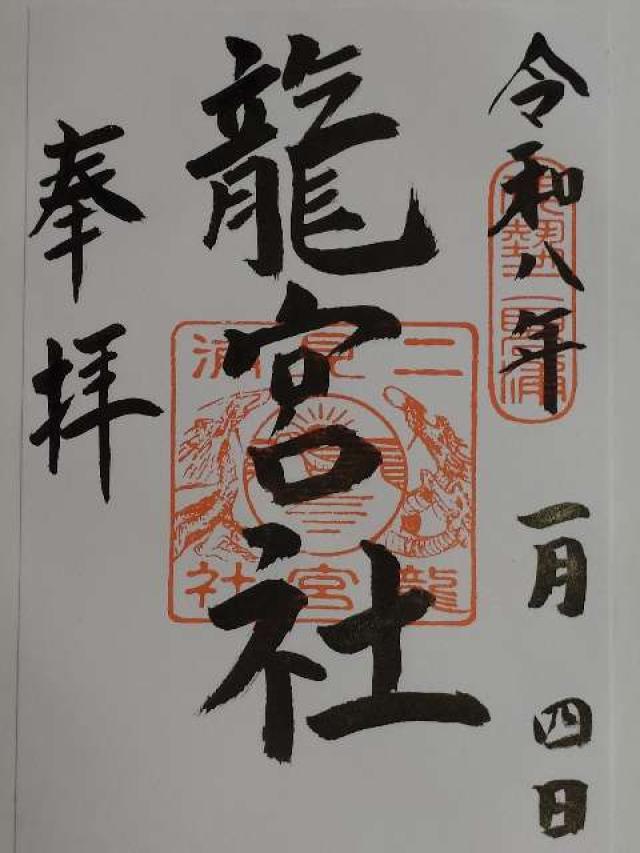 令和八年一月四日
龍宮社
奉拝
二見浦
龍宮社